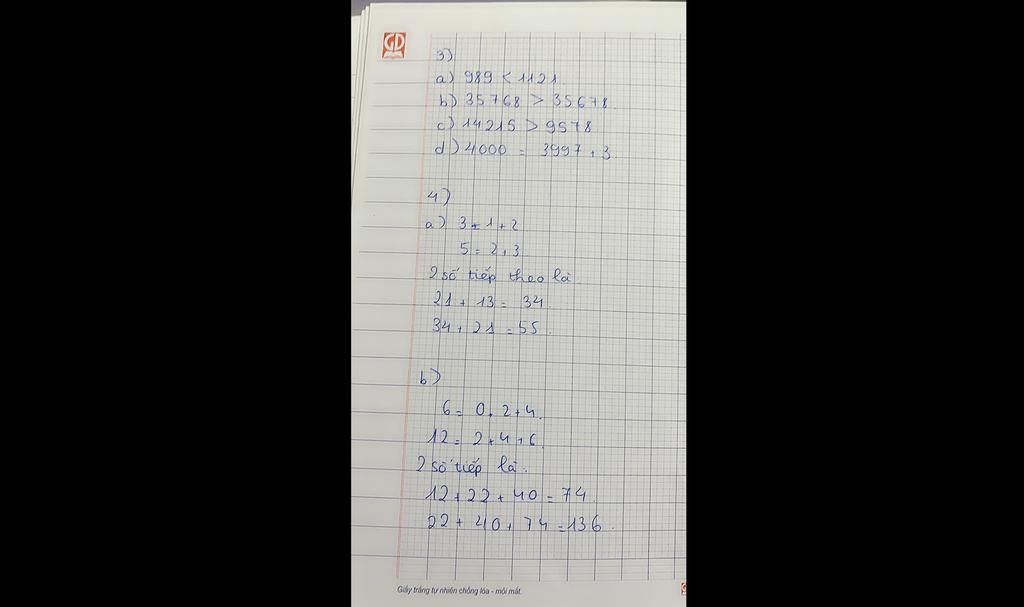 GD
3)
a) 989 < 1121
b) 35768 > 35678
c) 14215 > 9578
d) 4000 = 3997 + 3
4)
a) 3 = 1 + 2
5 = 2 + 3
2 số tiếp theo là
21 + 13 = 34
34 + 21 = 55
b)
6 = 0 + 2 + 4
12 = 2 + 4 + 6
2 số tiếp là.
12 + 22 + 40 = 74
22 + 40 + 74 = 136
Giấy trắng tự nhiên chống lóa - mỏi mắt.